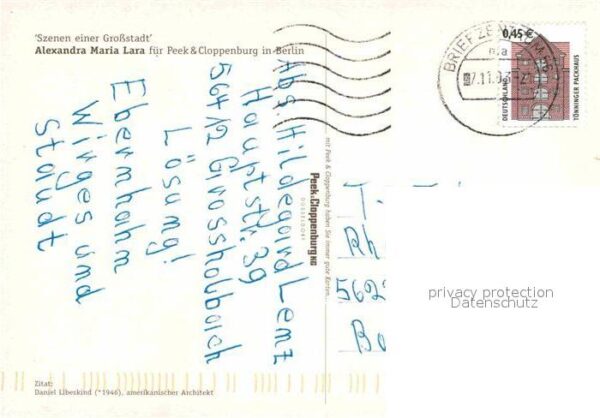 'Szenen einer Großstadt'
Alexandra Maria Lara für Peek&Cloppenburg in Berlin
Abs. Hildegard Lenz
Hauptstr. 39
56412 Grossholbach
Lösung!
Ebernhahn
Wirges und
Staudt
mit Peek & Cloppenburg haben Sie immer gute Karten...
Peek&Cloppenburg KG
DÜSSELDORF
BRIEFZENTRUM 56
0,45 €
DEUTSCHLAND
TÖNNINGER PACKHAUS
T
Rh
562
B
privacy protection
Datenschutz
Zitat:
Daniel Libeskind (*1946), amerikanischer Architekt